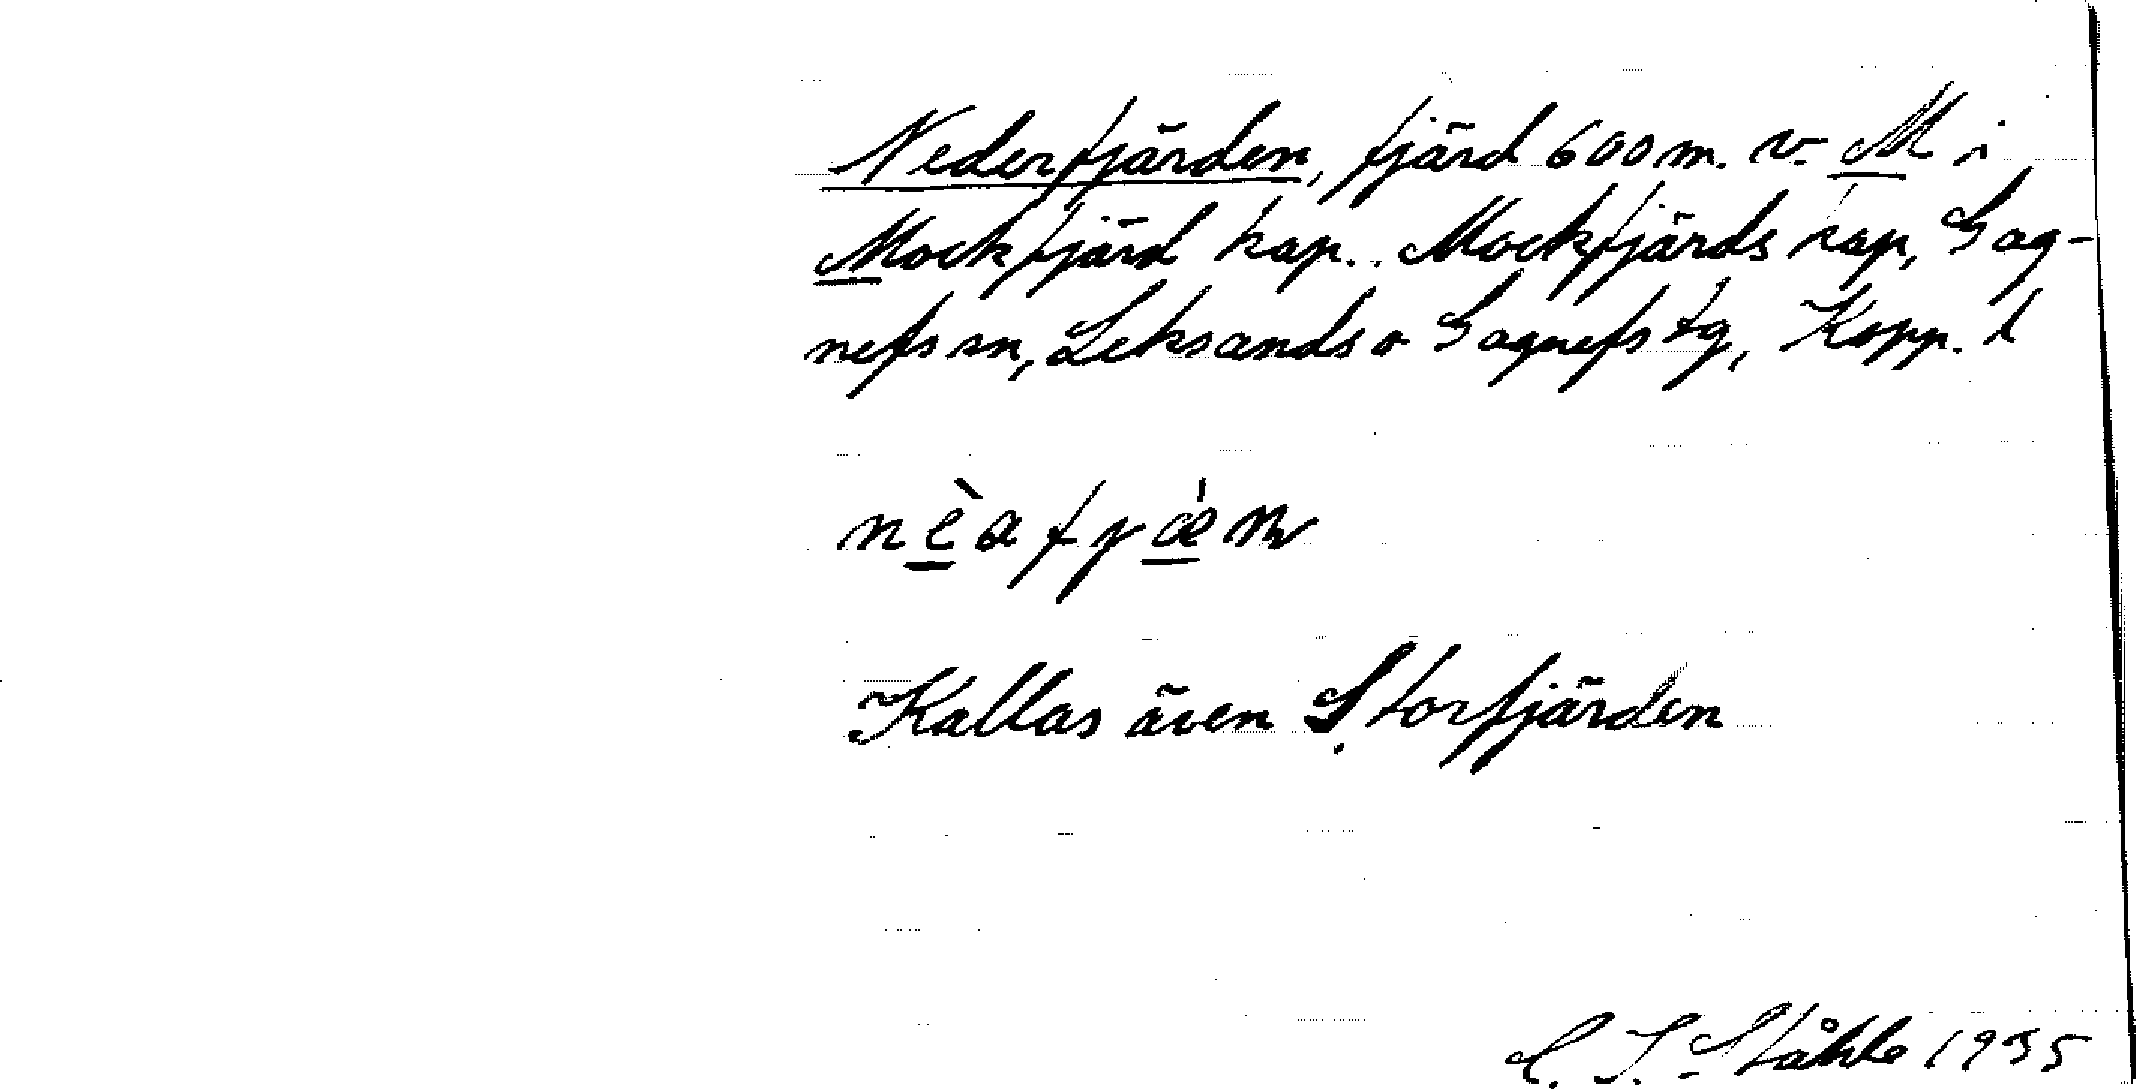 Nederfjärden, fjärd 600 m. v. M i
Mockfjärd kap. Mockfjärds kap, Gag-
nefs sn, Leksands o Gagnefs tg, Kopp. l
Kallas även Storfjärden
C. I. Ståhle 1935